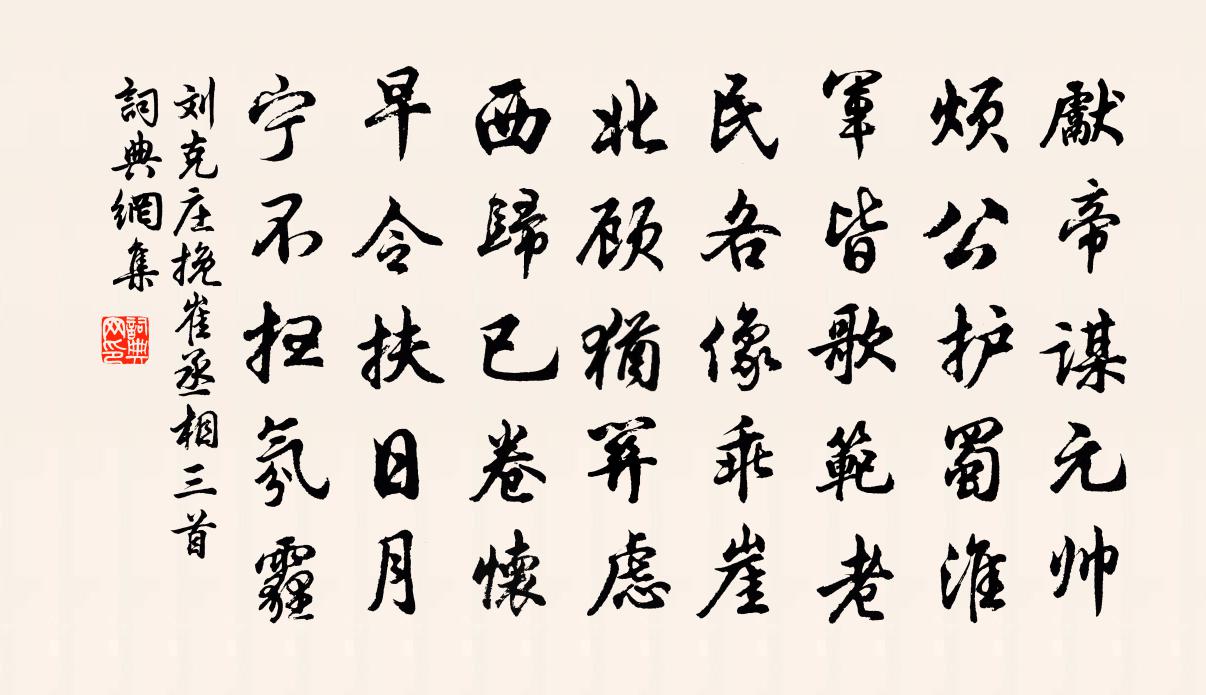 獻帝謀元帅
烦公护蜀淮
軍皆歌範老
民各像乖崖
北顾猶関虑
西歸已卷懷
早令扶日月
宁不扫氛霾
刘克庄挽崔丞相三首
詞典網集
詞典网印